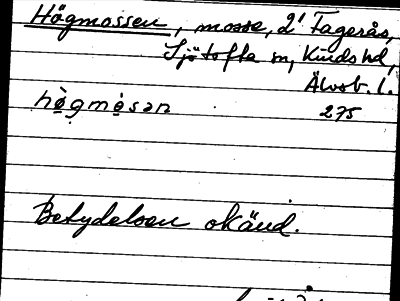 Högmossen, mosse, 2' Fagerås,
Sjötofta sn, Kinds hd,
Älvsb. l.
hø̀gmòsən 275
Betydelsen okänd.